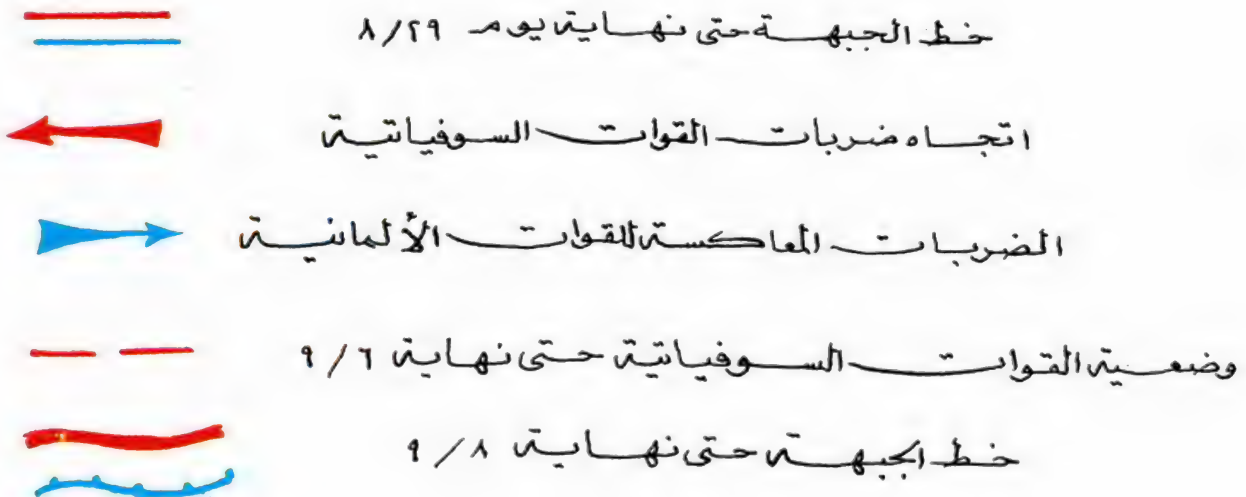 خط الجبهة حتى نهاية يوم ٨/٢٩
اتجاه ضربات القوات السوفياتية
الضربات المعاكسة للقوات الألمانية
وضعية القوات السوفياتية حتى نهاية ٩/٦
خط الجبهة حتى نهاية ٩/٨